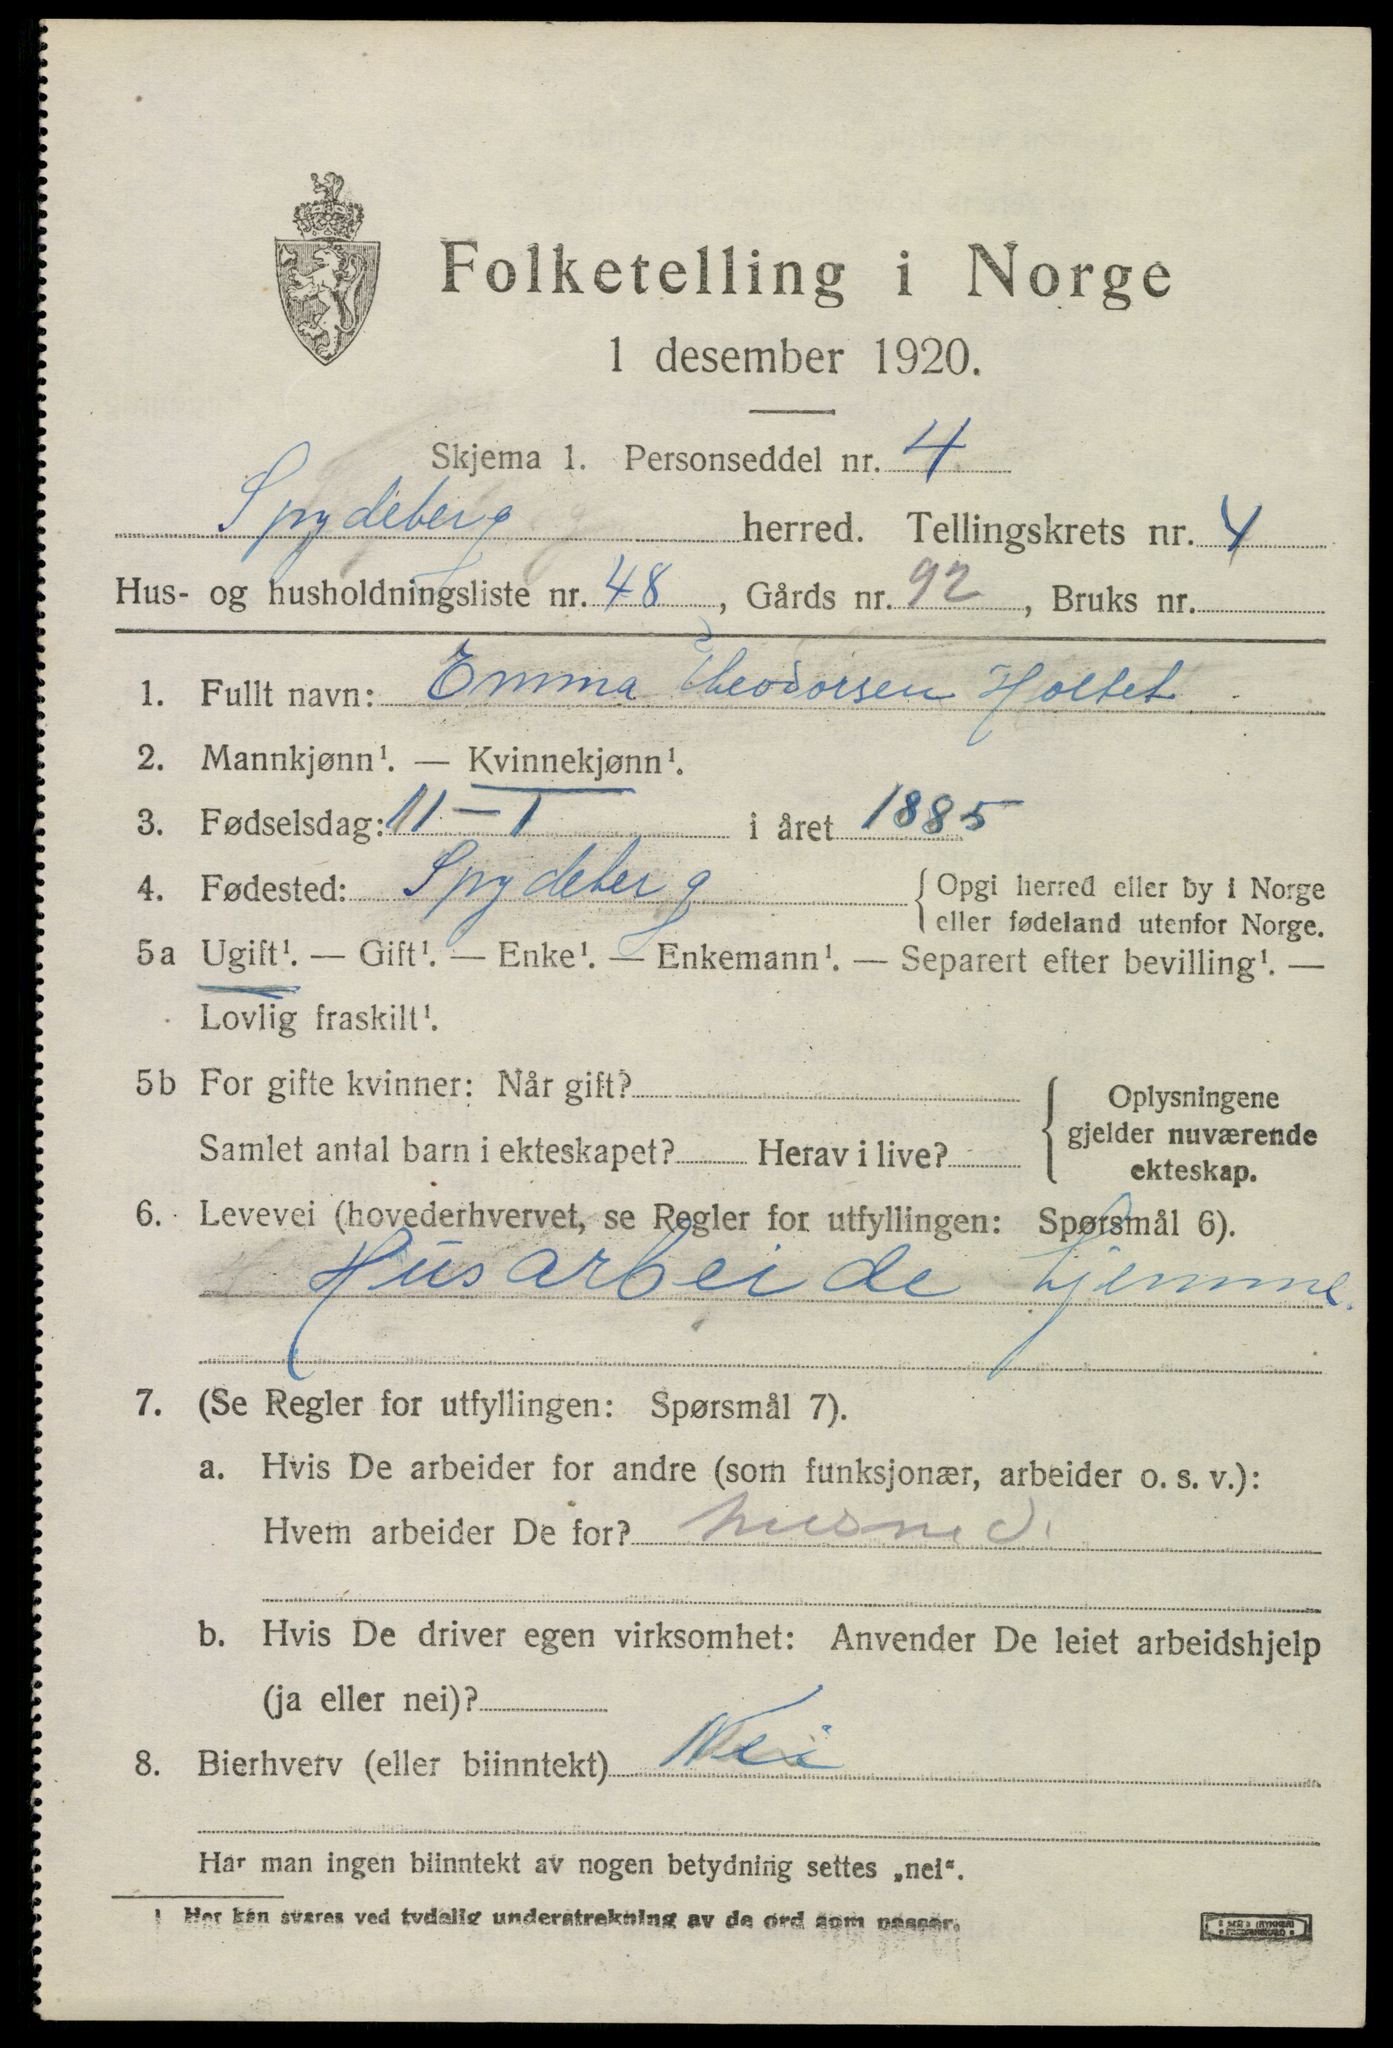 Folketelling i Norge
1 desember 1920.
Skjema 1. Personseddel nr. 4
Spydeberg herred. Tellingskrets nr. 4
Hus- og husholdningsliste nr. 48, Gårds nr. 92, Bruks nr.
1. Fullt navn: Emma Theodorsen Holtet
2. Mannkjønn¹. — Kvinnekjønn¹.
3. Fødselsdag: 11 - 1 i året 1885
4. Fødested: Spydeberg { Opgi herred eller by i Norge
eller fødeland utenfor Norge.
5a Ugift¹. — Gift¹. — Enke¹. — Enkemann¹. — Separert efter bevilling¹. —
Lovlig fraskilt¹.
5b For gifte kvinner: Når gift?
Samlet antal barn i ekteskapet? Herav i live?
{ Oplysningene
gjelder nuværende
ekteskap.
6. Levevei (hovederhvervet, se Regler for utfyllingen: Spørsmål 6).
Husarbeide hjemme.
7. (Se Regler for utfyllingen: Spørsmål 7).
a. Hvis De arbeider for andre (som funksjonær, arbeider o. s. v.):
Hvem arbeider De for? husmed.
b. Hvis De driver egen virksomhet: Anvender De leiet arbeidshjelp
(ja eller nei)?
8. Bierhverv (eller biinntekt) Nei
Har man ingen biinntekt av nogen betydning settes „nei“.
1 Her kan svares ved tydelig understrekning av de ord som passer.